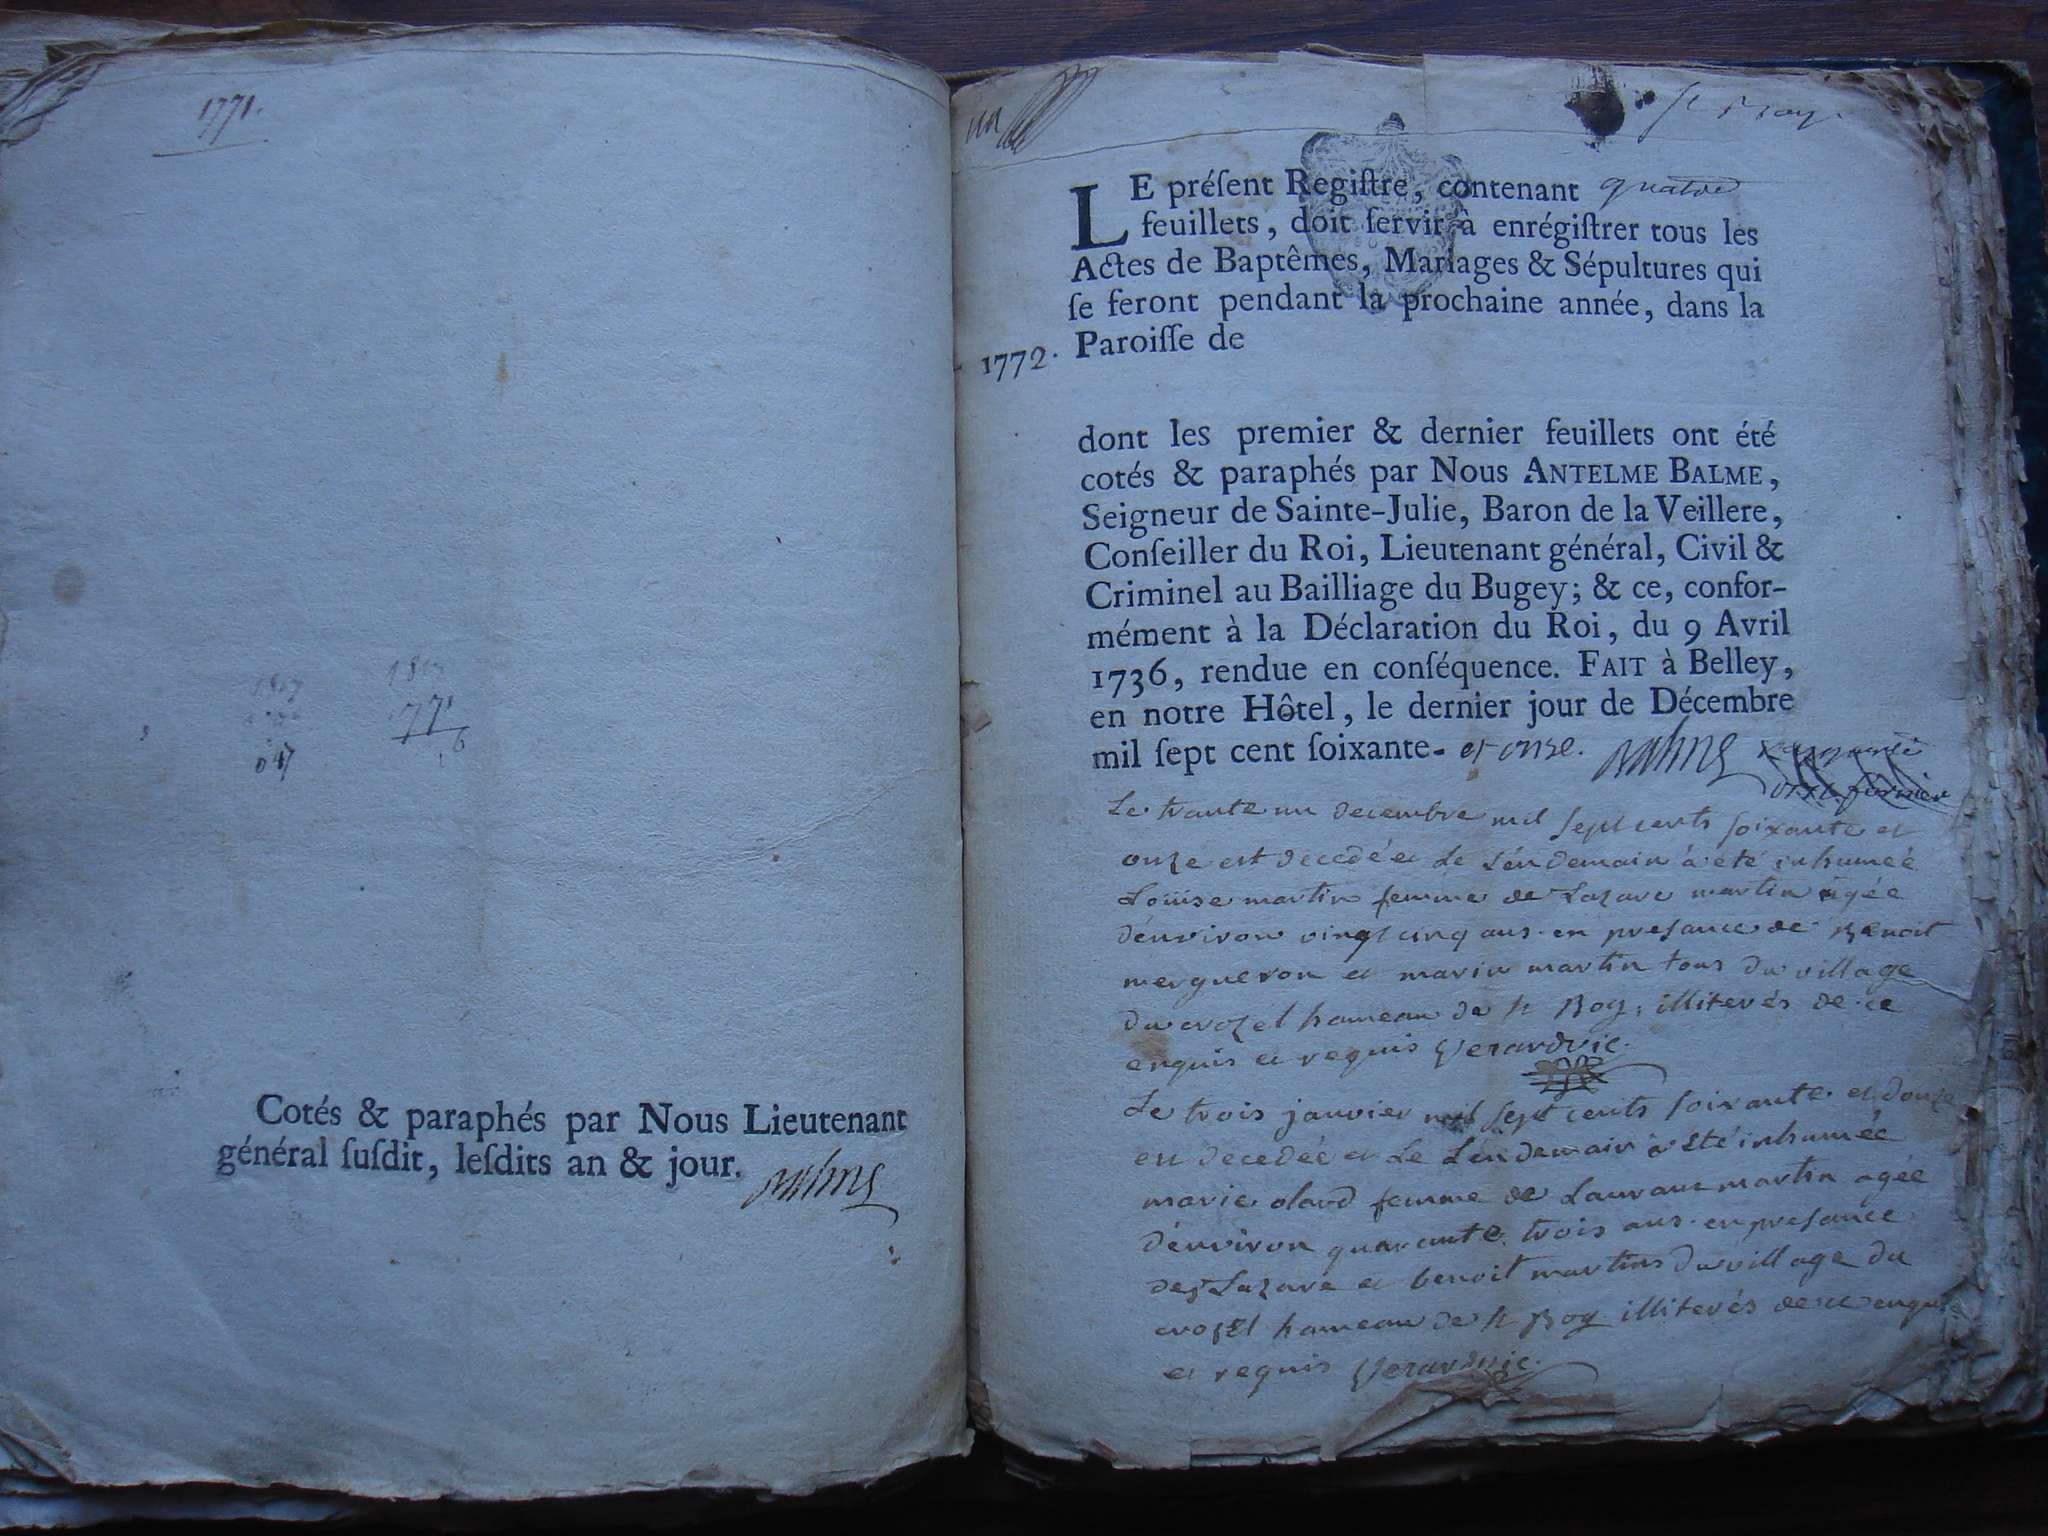 1771.
1817
1813
771
047
Cotés & paraphés par Nous Lieutenant
général ſuſdit, leſdits an & jour. Balme
un
St Roy.
LE préſent Regiſtre, contenant quatre
feuillets, doit ſervir à enrégiſtrer tous les
Actes de Baptêmes, Mariages & Sépultures qui
ſe feront pendant la prochaine année, dans la
1772. Paroiſſe de
dont les premier & dernier feuillets ont été
cotés & paraphés par Nous ANTELME BALME,
Seigneur de Sainte-Julie, Baron de la Veillere,
Conſeiller du Roi, Lieutenant général, Civil &
Criminel au Bailliage du Bugey; & ce, confor-
mément à la Déclaration du Roi, du 9 Avril
1736, rendue en conſéquence. FAIT à Belley,
en notre Hôtel, le dernier jour de Décembre
mil ſept cent ſoixante- et onze. Balme
Le trante un decembre mil sept cents soixante et
onze est decedée et Le Léndemain à été inhumeé
Loüise martin femme de Lazare martin agée
d'énviron vingt cinq ans en presance de Benoit
mergueron et marin martin tous du village
du crozel hameau de st Boy, illiterés de ce
enquis et requis Verardvic.
Le trois janvier mil sept cents soixante et douze
en decedée et Le Léndemain à été inhumée
marie olard femme de Laurans martin agée
d'énviron quarante trois ans en presance
des Lazare et benoit martins du village du
crozel hameau de st Boy illiterés de ce enquis
et requis Verardvic.